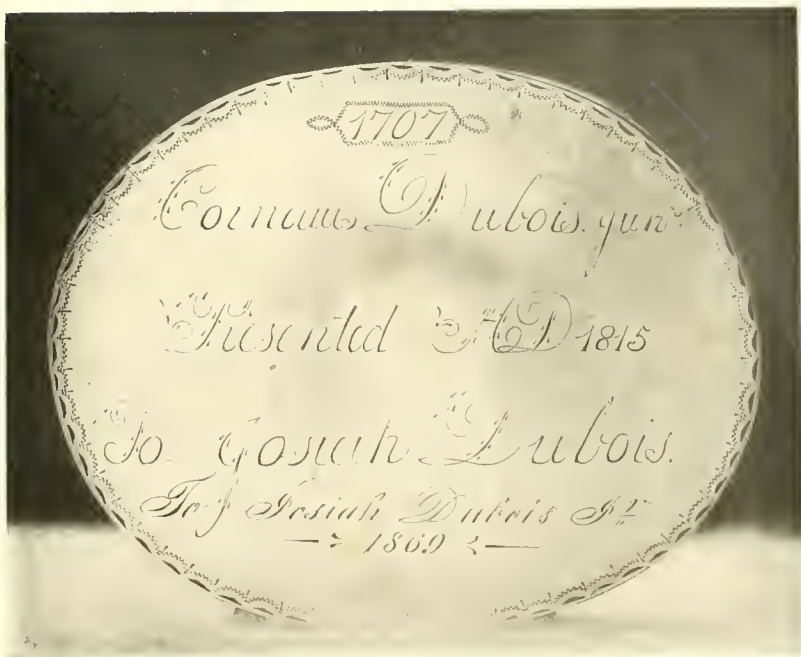 1707
Cornelius Dubois. junr.
Presented AD 1815
To Josiah Dubois.
To J Josiah Dubois Jr
1869